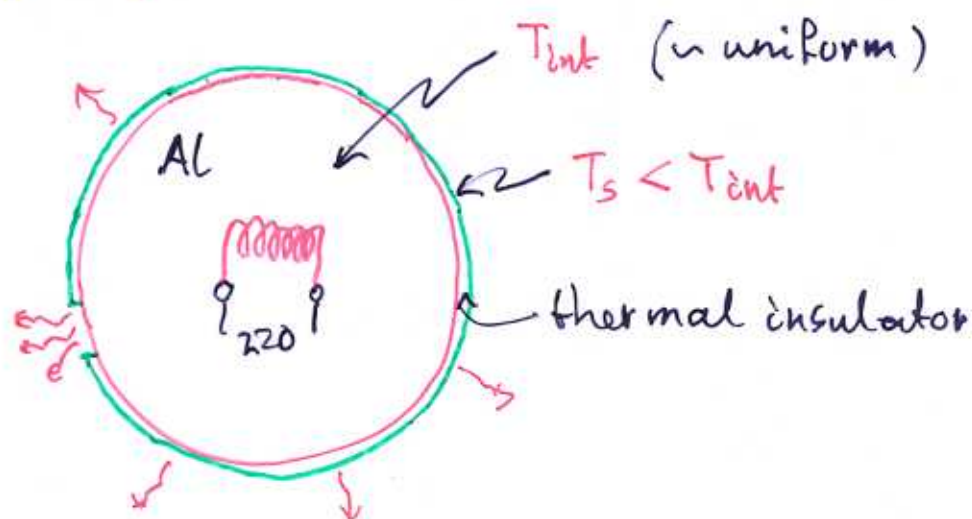 T_int (~ uniform)
Al
T_s < T_int
thermal insulator
220